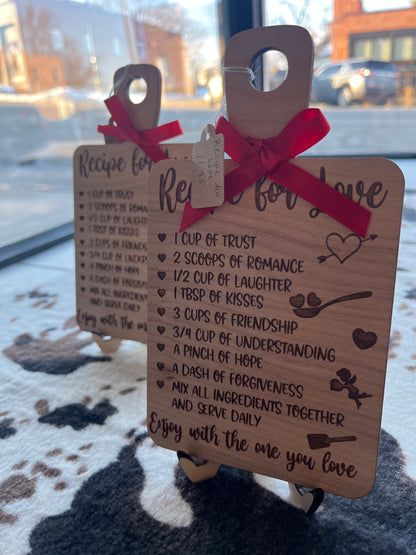 Recipe for Love
1 CUP OF TRUST
2 SCOOPS OF ROMANCE
1/2 CUP OF LAUGHTER
1 TBSP OF KISSES
3 CUPS OF FRIENDSHIP
3/4 CUP OF UNDERSTANDING
A PINCH OF HOPE
A DASH OF FORGIVENESS
MIX ALL INGREDIENTS TOGETHER
AND SERVE DAILY
Enjoy with the one you love
Recipe for
1 CUP OF TRUST
2 SCOOPS OF ROMAN
1/2 CUP OF LAUGHTE
1 TBSP OF KISSES
3 CUPS OF FRIENDS
3/4 CUP OF UNDER
A PINCH OF HOPE
A DASH OF FORGIV
MIX ALL INGREDIEN
AND SERVE DAILY
Enjoy with the on